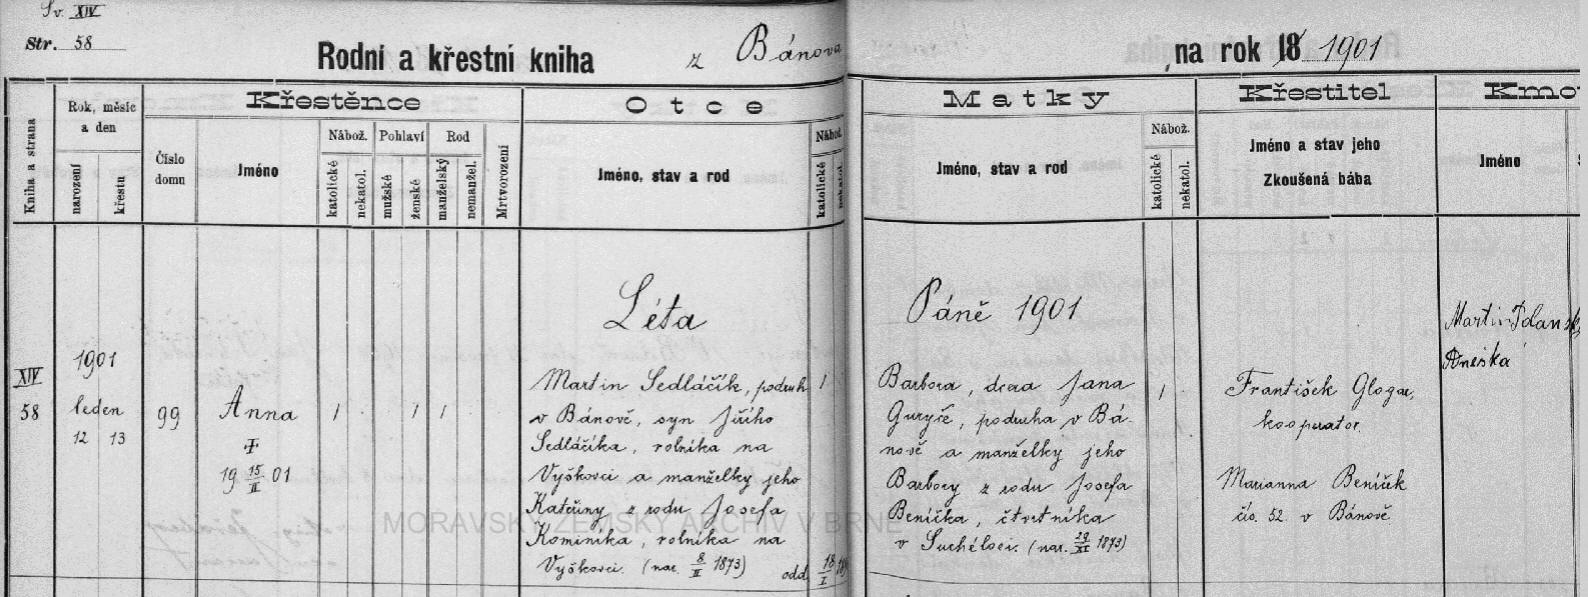 Sv. XIV
Str. 58
Rodní a křestní kniha z Bánova na rok 18 1901
Kniha a strana
Rok, měsíc
a den
narození
křestu
Křestěnce
Číslo
domu
Jméno
Nábož.
katolické
nekatol.
Pohlaví
mužské
ženské
Rod
manželský
nemanžel.
Mrtvorození
Otce
Jméno, stav a rod
Nábož.
katolické
nekatol.
Matky
Jméno, stav a rod
Nábož.
katolické
nekatol.
Křestitel
Jméno a stav jeho
Zkoušená bába
Kmo
Jméno
Léta Páně 1901
XIV
58
1901
leden
12 13
99
Anna
19 15/II 01
1 1 1
Martin Sedláčík, podruh
v Bánově, syn Jiřího
Sedláčíka, rolníka na
Vyškovci a manželky jeho
Kateřiny z rodu Josefa
Kominíka, rolníka na
Vyškovci. (nar. 8/II 1873) odd. 18/I
1
Barbora, dcera Jana
Guryče, podruha v Bá-
nově a manželky jeho
Barbory z rodu Josefa
Beníčka, čtvrtníka
v Suchélozi. (nar. 29/XI 1873)
1
František Glogar,
kooperator.
Marianna Beníček
čís. 52 v Bánově
Martin
Aneška
MORAVSKÝ ZEMSKÝ ARCHIV V BRNĚ